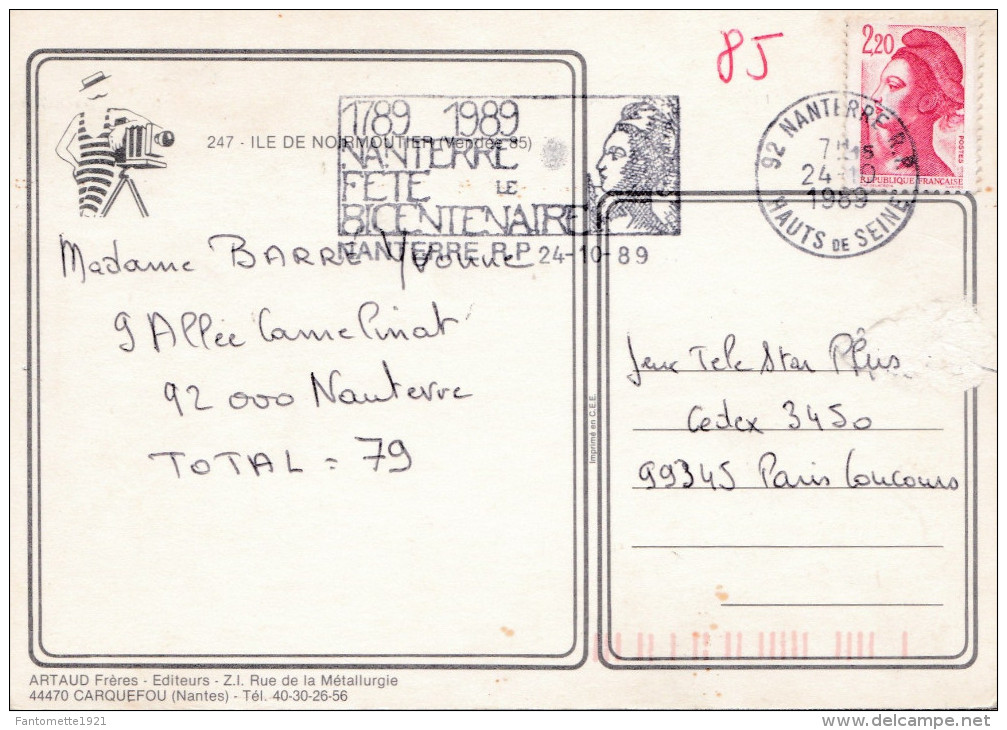 85
2,20
POSTES
REPUBLIQUE FRANÇAISE
92 NANTERRE R.P.
24-10
1989
HAUTS DE SEINE
1789 1989
NANTERRE
FETE LE
BICENTENAIRE
NANTERRE R.P. 24-10-89
247 - ILE DE NOIRMOUTIER (Vendée 85)
Madame BARRE Yvonne
9 Allée Camelinat
92 000 Nanterre
TOTAL = 79
Imprimé en C.E.E.
Jeux Tele Star Plus
Cedex 3450
99345 Paris Concours
ARTAUD Frères - Editeurs - Z.I. Rue de la Métallurgie
44470 CARQUEFOU (Nantes) - Tél. 40-30-26-56
Fantomette1921
www.delcampe.net